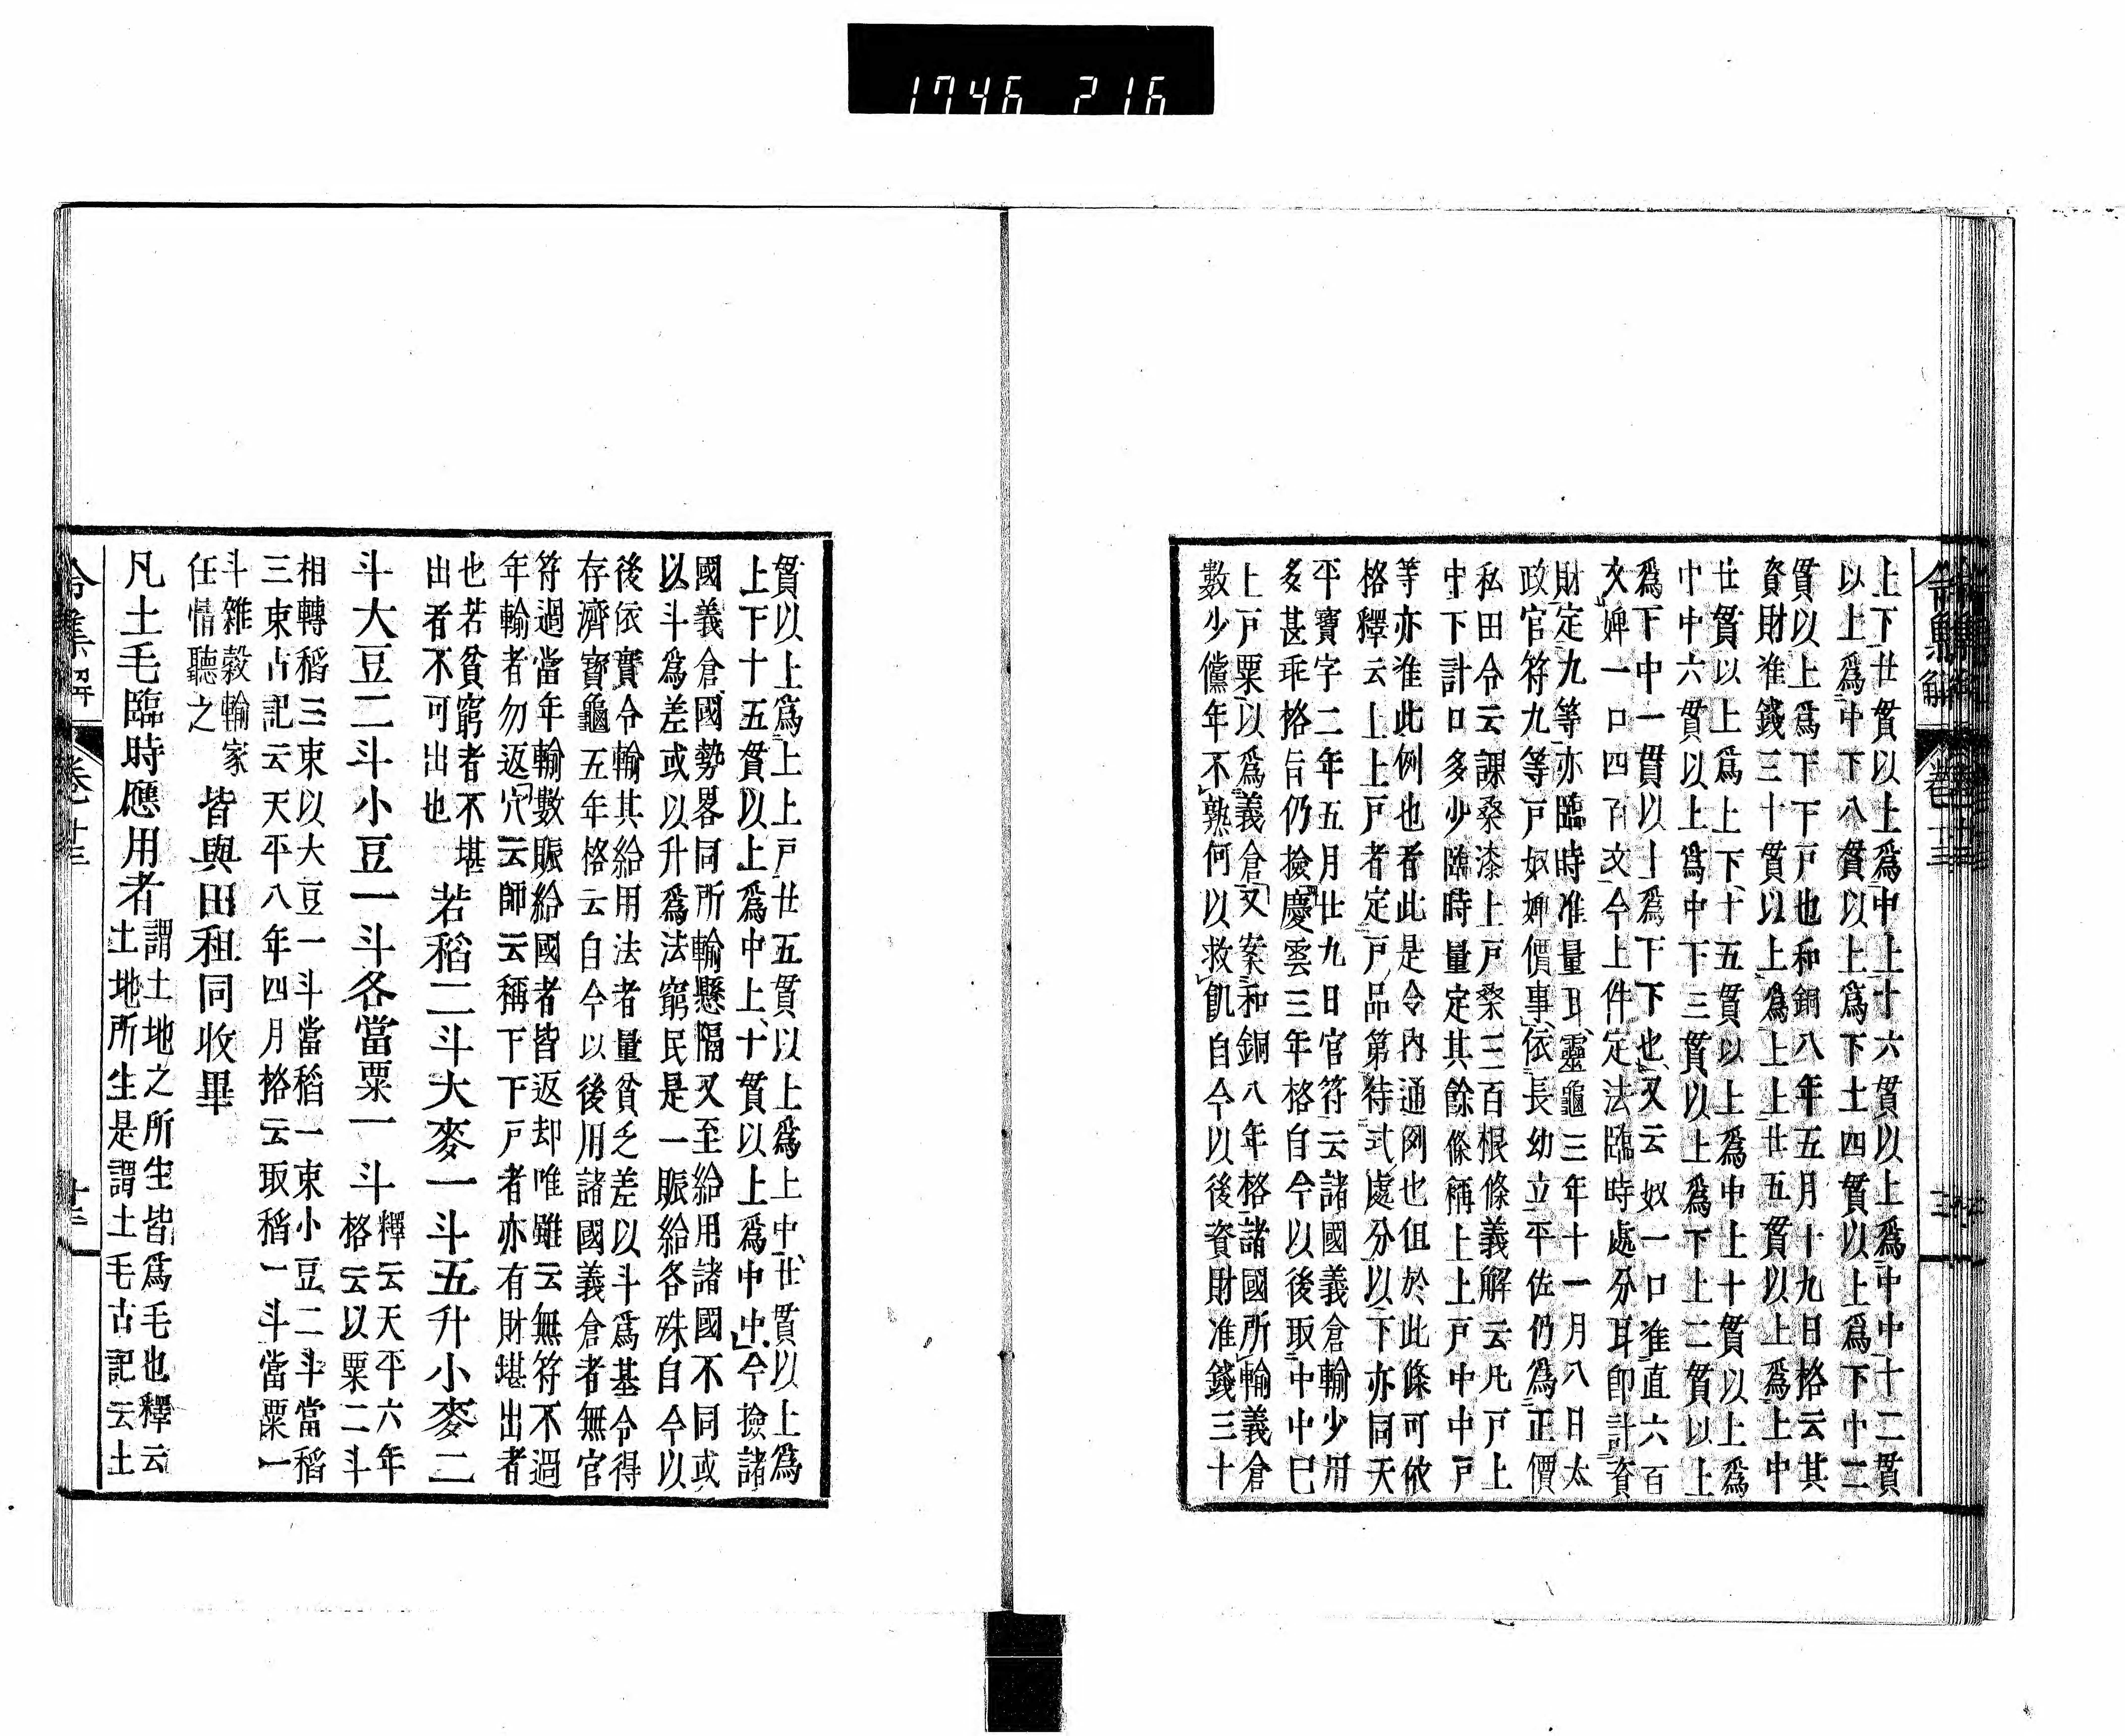 1746 216
上下廿貫以上爲中上十六貫以上爲中中十二貫
以上爲中下八貫以上爲下上四貫以上爲下中二
貫以上爲下下戸也和銅八年五月十九日格云其
資財准錢三十貫以上爲上上廿五貫以上爲上中
廿貫以上爲上下十五貫以上爲中上十貫以上爲
中中六貫以上爲中下三貫以上爲下上二貫以上
爲下中一貫以上爲下下也又云奴一口准直六百
文婢一口四百文今上件定法臨時處分耳卽計資
財定九等亦臨時准量耳靈龜三年十一月八日太
政官符九等戸奴婢價事依長幼立平佐仍爲正價
私田令云課桑漆上戸桑三百根條義解云凡戸上
中下計口多少臨時量定其餘條稱上上戸中中戸
等亦准此例也者此是令内通例也但於此條可依
格釋云上上戸者定戸品第待式處分以下亦同天
平寶字二年五月廿九日官符云諸國義倉輸少用
多甚乖格旨仍撿慶雲三年格自今以後取中中已
上戸粟以爲義倉又案和銅八年格諸國所輸義倉
數少儻年不熟何以救飢自今以後資財准錢三十
令集解 卷十三
貫以上爲上上戸廿五貫以上爲上中廿貫以上爲
上下十五貫以上爲中上十貫以上爲中中今撿諸
國義倉國勢畧同所輸懸隔又至給用諸國不同或
以斗爲差或以升爲法窮民是一賑給各殊自今以
後依實令輸其給用法者量貧乏差以斗爲基令得
存濟寶龜五年格云自今以後用諸國義倉者無官
符過當年輸數賑給國者皆返却唯雖云無符不過
年輸者勿返穴云師云稱下下戸者亦有財堪出者
也若貧窮者不堪
出者不可出也
若稻二斗大麥一斗五升小麥二
斗大豆二斗小豆一斗各當粟一斗
釋云天平六年
格云以粟二斗
相轉稻三束以大豆一斗當稻一束小豆二斗當稻
三束古記云天平八年四月格云取稻一斗當粟一
斗雜穀輸家
任情聽之
皆與田租同收畢
凡土毛臨時應用者
謂土地之所生皆爲毛也釋云
土地所生是謂土毛古記云土
令集解 卷十三 十三